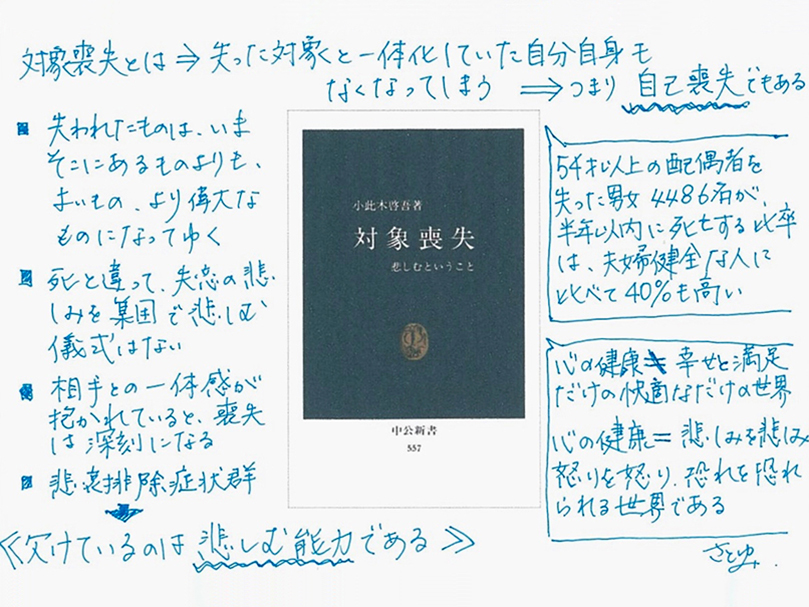 対象喪失とは⇒失った対象と一体化していた自分自身も
なくなってしまう ⇒つまり 自己喪失でもある
失われたものは、いま
そこにあるものよりも、
よいもの、より偉大な
ものになってゆく
死と違って、失恋の悲
しみを集団で悲しむ
儀式はない
相手との一体感が
抱かれていると、喪失
は深刻になる
悲哀排除症状群
≪欠けているのは悲しむ能力である≫
小此木啓吾著
対象喪失
悲しむということ
中公新書
557
54才以上の配偶者を
失った男女4486名が、
半年以内に死亡する比率
は、夫婦健全な人に
比べて40%も高い
心の健康≠幸せと満足
だけの快適なだけの世界
心の健康=悲しみを悲しみ
怒りを怒り、恐れを恐れ
られる世界である
さとゆみ